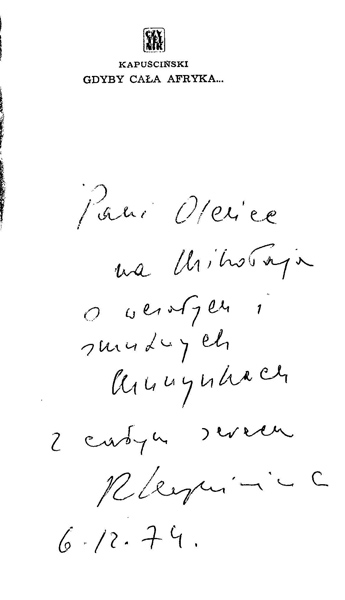 CZYTELNIK
KAPUŚCIŃSKI
GDYBY CAŁA AFRYKA...
Pani Oleńce
na Mikołaja
o wesołych i
smutnych
Murzynkach
z całym sercem
RKapuściński
6.12.74.